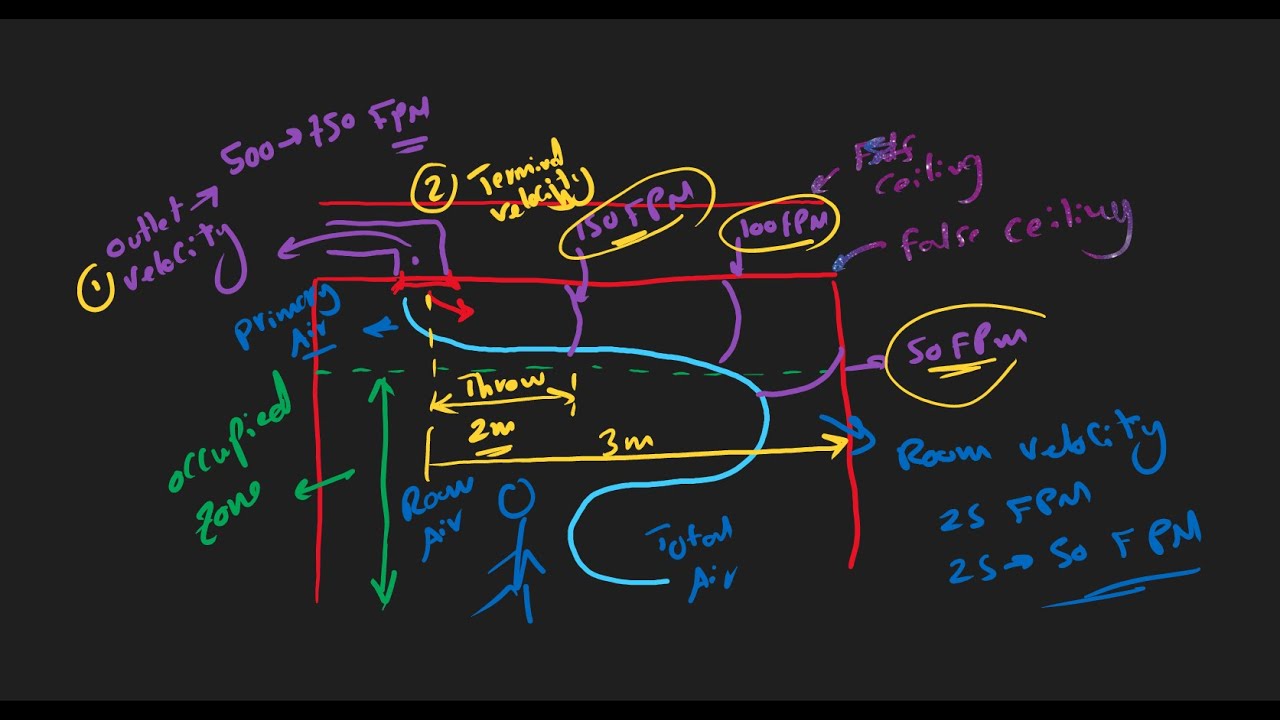 500→750 FPM
① outlet
velocity
② Terminal
velocity
150 FPM
100 FPM
ceiling
False ceiling
Primary
Air
50 FPM
Throw
2m
3m
occupied
Zone
Room
Air
Total
Air
Room velocity
25 FPM
25→50 FPM